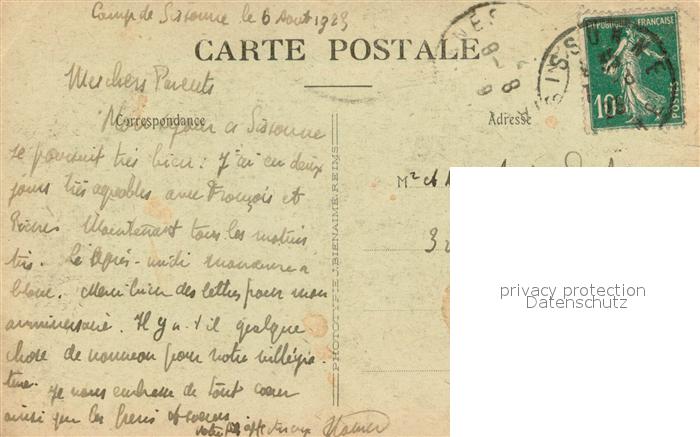 Camp de Sissonne le 6 Aout 1923
CARTE POSTALE
Mes chers Parents
Correspondance
Adresse
Mon séjour a Sissonne
se poursuit très bien : J'ai eu deux
jours très agréables avec François et
Maintenant tous les matins
tir. Le Après-midi manœuvre à
blanc. Merci bien des lettres pour mon
anniversaire. Il y a-t-il quelque
chose de nouveau pour votre villégia-
ture. Je vous embrasse de tout cœur
ainsi que les frères et sœurs
votre fils affectueux
Mr et
3
PHOTOTYPIE J. BIENAIMÉ, REIMS
REPUBLIQUE FRANÇAISE
10
POSTES
SISSONNE
privacy protection
Datenschutz